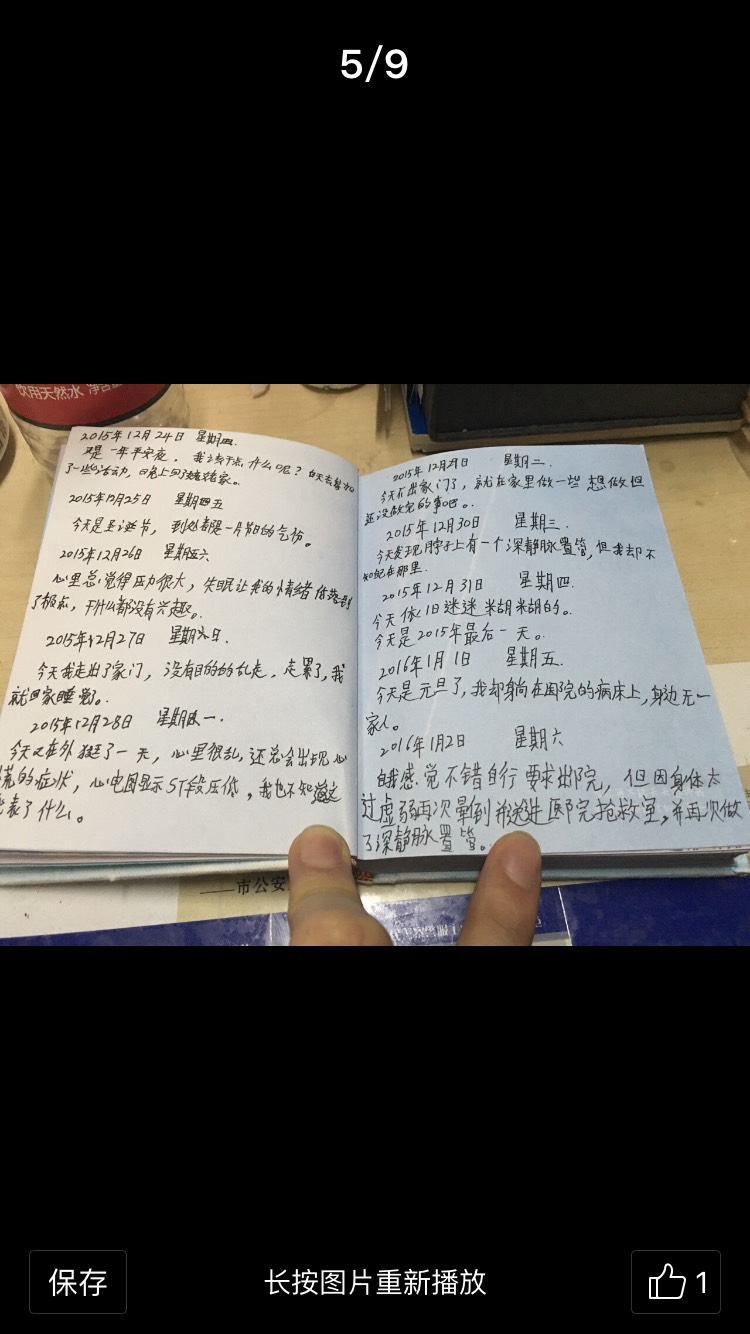 5/9
饮用天然水 净含
2015年12月24日 星期四.
又是一年平安夜。我该干点什么呢？白天去参加
了一些活动，晚上回了家。
2015年12月25日 星期五
今天是圣诞节，到处都是一片节日的气氛。
2015年12月26日 星期六
心里总觉得压力很大，失眠让我的情绪低落到
了极点，干什么都没有兴趣。
2015年12月27日 星期日.
今天我走出了家门，没有目的的乱走，走累了，我
就回家睡觉。
2015年12月28日 星期一.
今天又在外 了一天，心里很乱，还总会出现心
慌的症状，心电图显示ST段压低，我也不知道这
代表了什么。
2015年12月29日 星期二.
今天不出家门了，就在家里做一些想做但
还没做完的事吧。
2015年12月30日 星期三.
今天发现脖子上有一个深静脉置管，但我却不
知纪在那里.
2015年12月31日 星期四.
今天依旧迷迷米胡米胡的。
今天是2015年最后一天。
2016年1月1日 星期五.
今天是元旦了，我却躺在医院的病床上，身边无一
家人。
2016年1月2日 星期六
自我感觉不错自行要求出院，但因身体太
过虚弱再次晕倒并送进医院抢救室，并再次做
了深静脉置管。
市公安
保存
长按图片重新播放
1